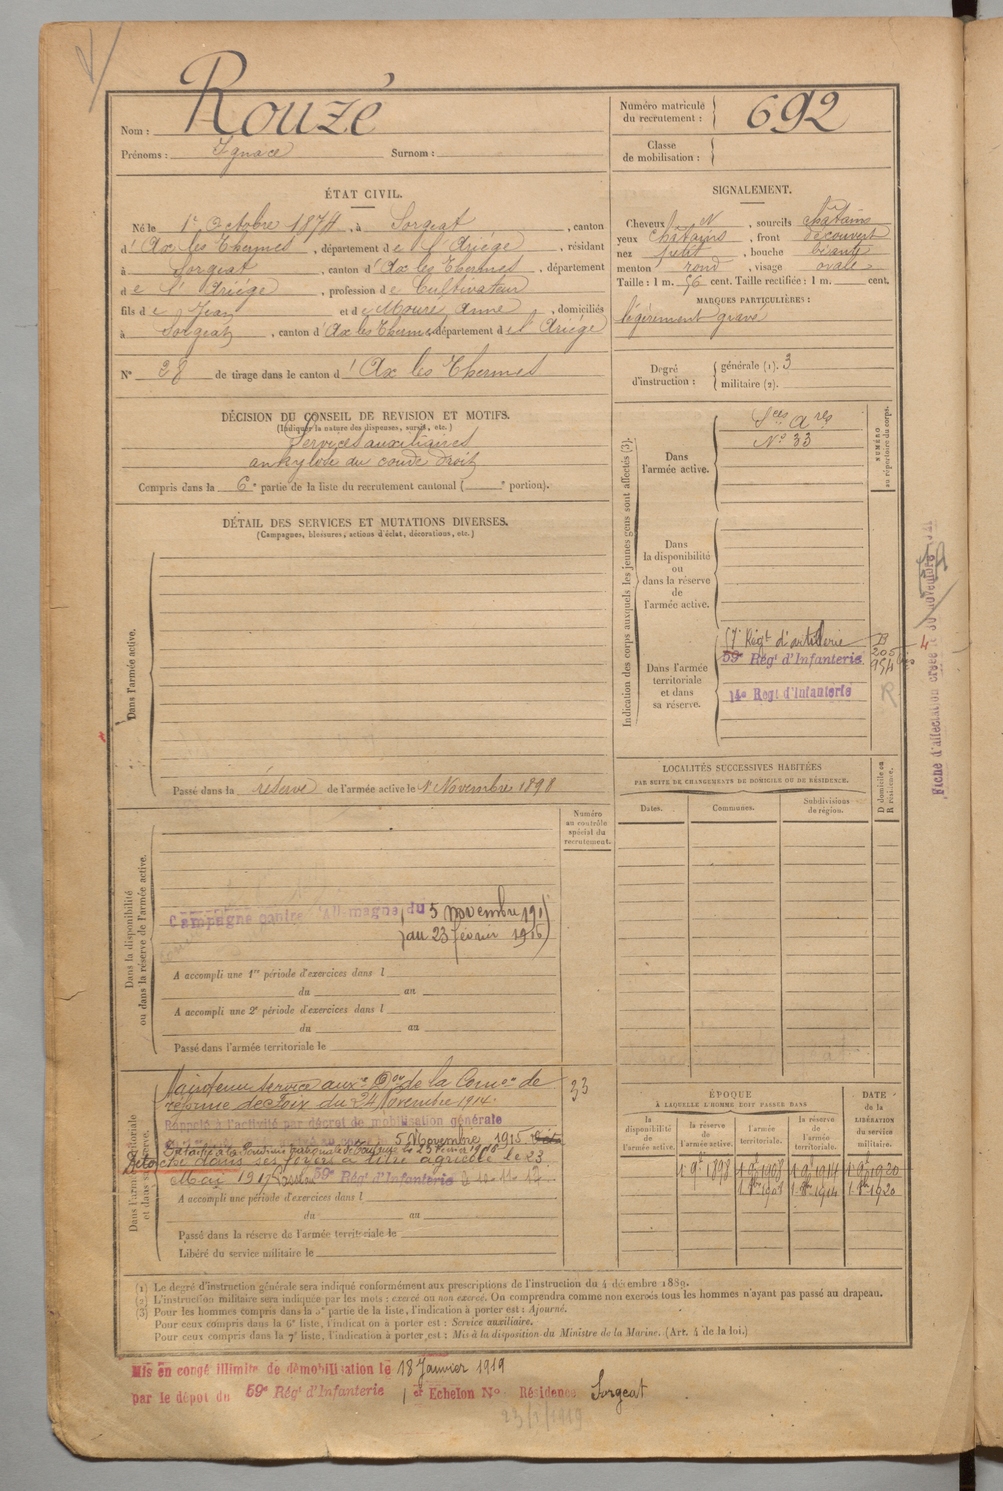 Rouzé
Nom :
Prénoms : Ignace Surnom :
Numéro matricule
du recrutement : 692
Classe
de mobilisation :
ÉTAT CIVIL.
Né le 1er Octobre 1874, à Sorgeat, canton
d'Ax les Thermes, département de l'Ariége, résidant
à Sorgeat, canton d'Ax les Thermes, département
de l'Ariége, profession de Cultivateur
fils de Jean et de Moure Anne, domiciliés
à Sorgeat, canton d'Ax les Thermes, département de l'Ariége
N° 28 de tirage dans le canton d'Ax les Thermes
SIGNALEMENT.
Cheveux N, sourcils chatains
yeux chatains, front découvert
nez petit, bouche béante
menton rond, visage ovale
Taille : 1 m. 56 cent. Taille rectifiée : 1 m. cent.
MARQUES PARTICULIÈRES :
légèrement gravé
Degré
d'instruction :
générale (1). 3
militaire (2).
DÉCISION DU CONSEIL DE REVISION ET MOTIFS.
(Indiquer la nature des dispenses, sursis, etc.)
Services auxiliaires
ankylose du coude droit
Compris dans la 6e partie de la liste du recrutement cantonal ( e portion).
DÉTAIL DES SERVICES ET MUTATIONS DIVERSES.
(Campagnes, blessures, actions d'éclat, décorations, etc.)
Dans l'armée active.
Passé dans la réserve de l'armée active le 1 Novembre 1898
Indication des corps auxquels les jeunes gens sont affectés (3).
NUMÉRO
au répertoire du corps.
Dans
l'armée active.
Sces Ares
N° 33
Dans
la disponibilité
ou
dans la réserve
de
l'armée active.
Dans l'armée
territoriale
et dans
sa réserve.
57 Régt d'artillerie
59e Régt d'Infanterie
14e Regt d'Infanterie
R
Fiche d'affectation créée le 30 novembre
LOCALITÉS SUCCESSIVES HABITÉES
PAR SUITE DE CHANGEMENTS DE DOMICILE OU DE RÉSIDENCE.
Dates.
Communes.
Subdivisions
de région.
D domicile ou
R résidence.
Numéro
au contrôle
spécial du
recrutement.
Dans la disponibilité
ou dans la réserve de l'armée active.
Campagne contre l'Allemagne du 5 novembre 191
au 23 février 1916
A accompli une 1re période d'exercices dans l
du au
A accompli une 2e période d'exercices dans l
du au
Passé dans l'armée territoriale le
33
Maintenu service auxre Don de la Comon de
réforme de Foix du 24 Novembre 1914.
Rappelé à l'activité par décret de mobilisation générale
5 Novembre 1915
Détaché dans ses foyers à titre agricole le 23
Mai 1917 59e Régt d'Infanterie
A accompli une période d'exercices dans l
du au
Passé dans la réserve de l'armée territoriale le
Libéré du service militaire le
ÉPOQUE
À LAQUELLE L'HOMME DOIT PASSER DANS
la
disponibilité
de
l'armée active.
la réserve
de
l'armée active.
l'armée
territoriale.
la réserve
de
l'armée
territoriale.
DATE
de la
LIBÉRATION
du service
militaire.
1 9bre 1898 1 9bre 1908 1 9bre 1914 1 9bre 1920
1 8bre 1908 1 8bre 1914 1 8bre 1920
(1) Le degré d'instruction générale sera indiqué conformément aux prescriptions de l'instruction du 4 décembre 1889.
(2) L'instruction militaire sera indiquée par les mots : exercé ou non exercé. On comprendra comme non exercés tous les hommes n'ayant pas passé au drapeau.
(3) Pour les hommes compris dans la 5e partie de la liste, l'indication à porter est : Ajourné.
Pour ceux compris dans la 6e liste, l'indication à porter est : Service auxiliaire.
Pour ceux compris dans la 7e liste, l'indication à porter est : Mis à la disposition du Ministre de la Marine. (Art. 4 de la loi.)
Mis en congé illimité de démobilisation le 18 Janvier 1919
par le dépôt du 59e Régt d'Infanterie 1er Echelon N° Résidence Sorgeat
23/1/1919